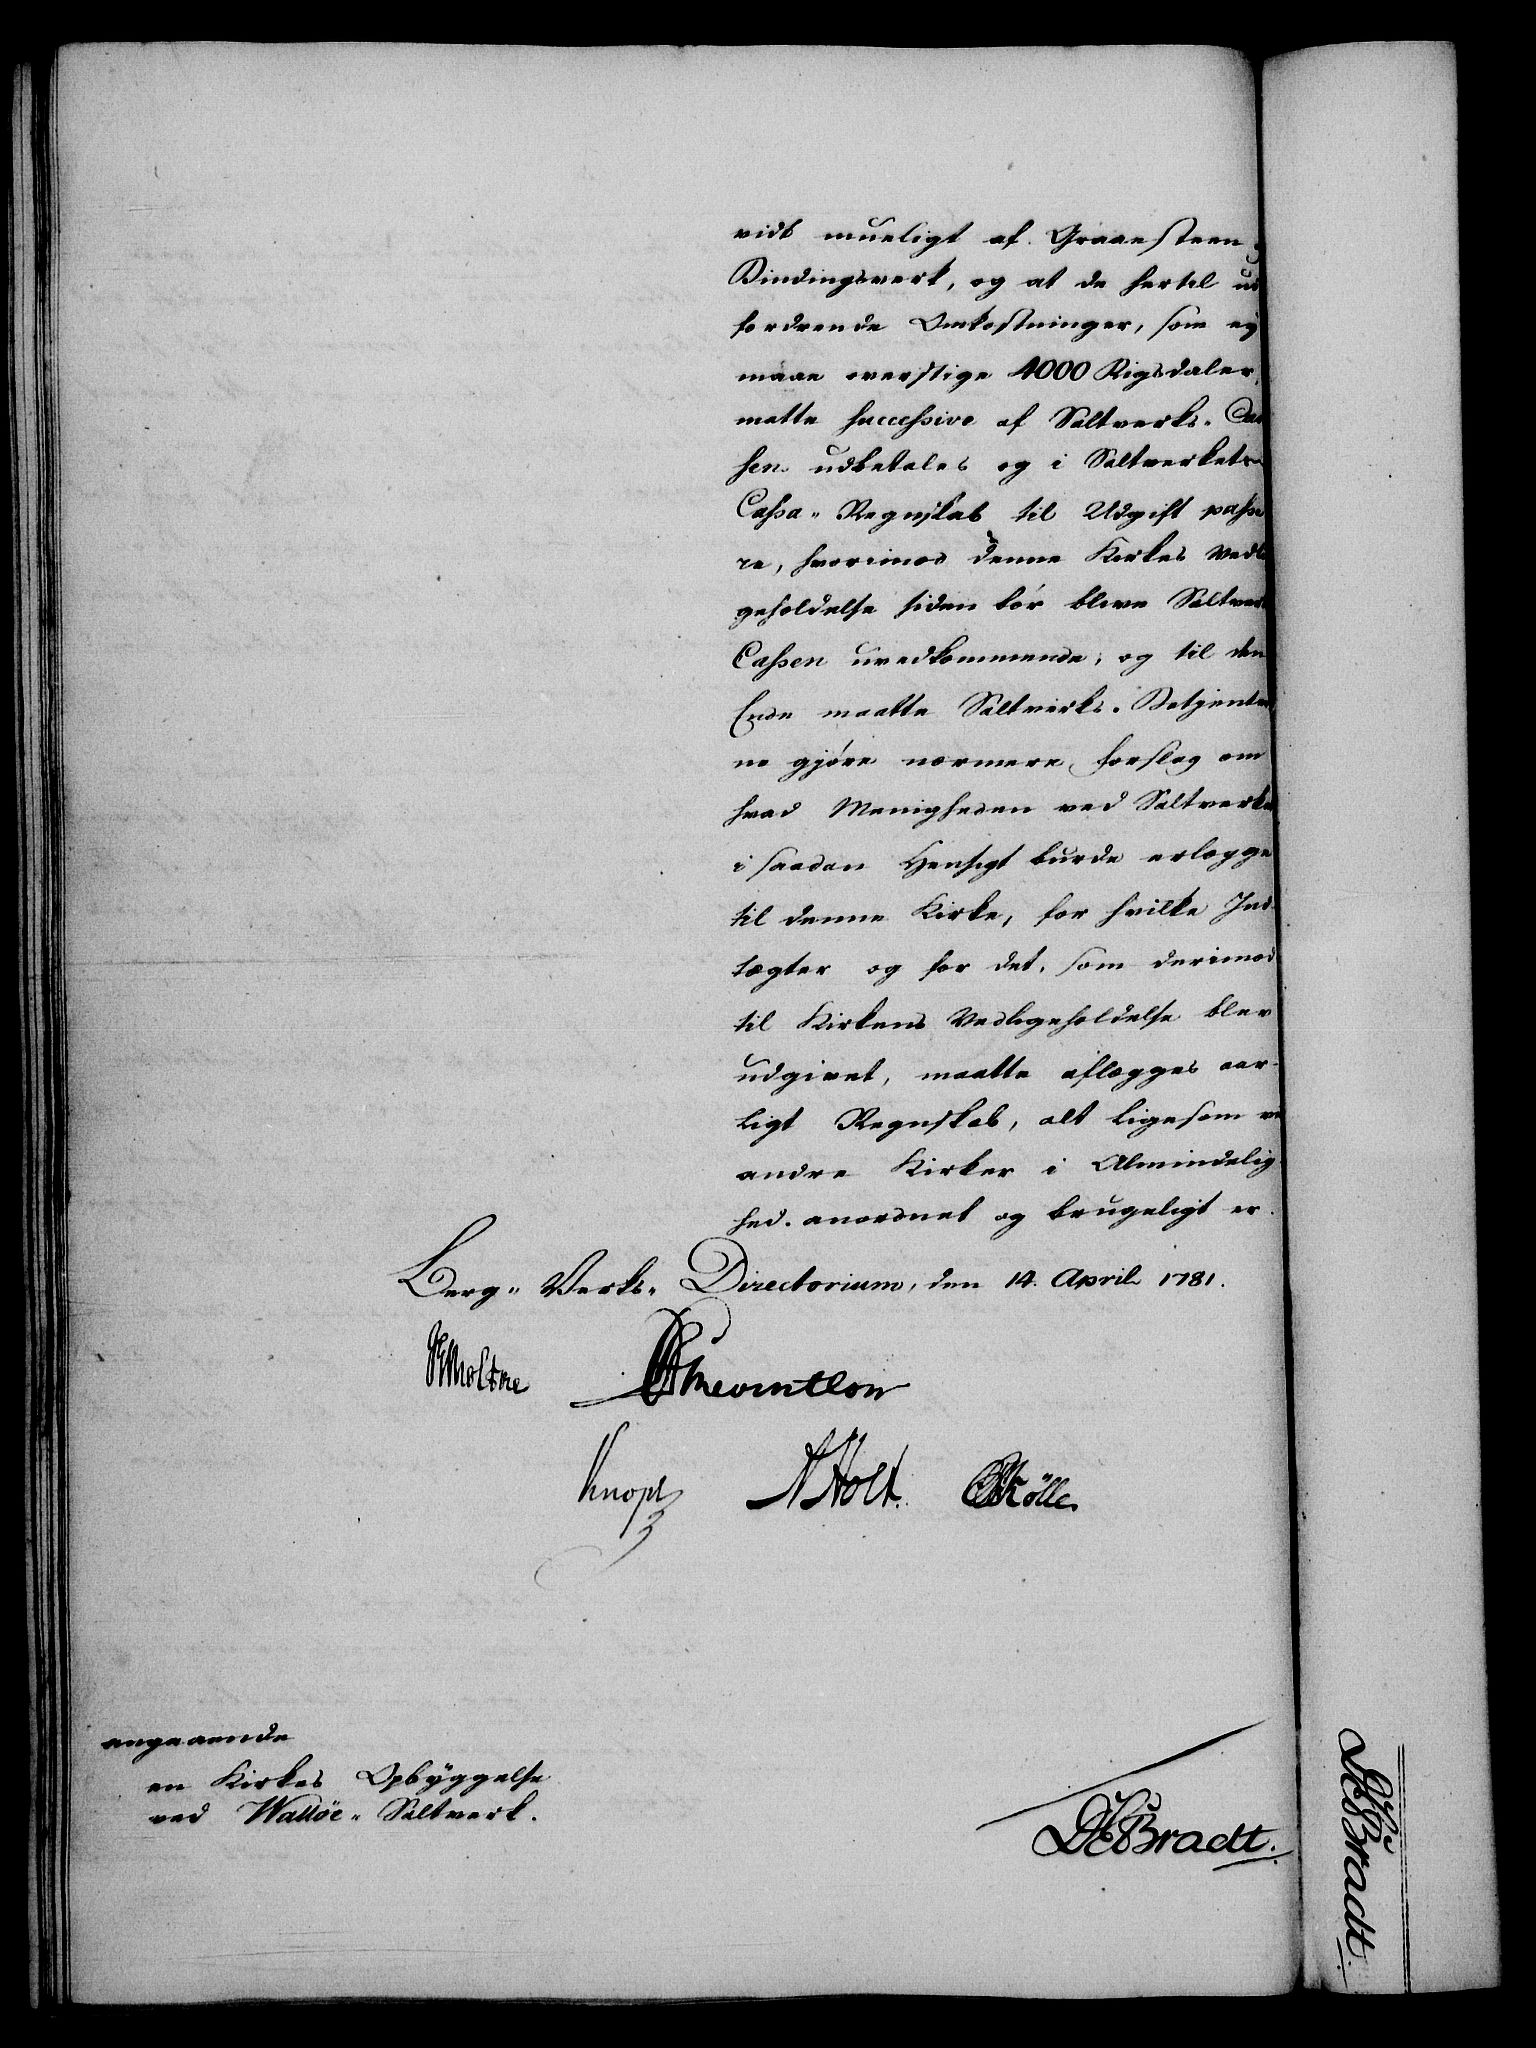 vidt mueligt af Graaesteen
Bindingsverk, og at de hertil ud
fordrende Omkostninger, som ej
maae overstige 4000 Rigsdaler,
matte successive af Saltverks-Cas
sen udbetales og i Saltverkets
Cassa-Regnskab til Udgift passe
re, hvorimod denne Kirkes Vedli
geholdelse siden bör blive Saltverks
Cassen uvedkommende, og til den
Ende maatte Saltverks-Betjenter
ne gjöre nærmere forslag om
hvad Menigheden ved Saltverket
i saadan Hensigt burde erlægge
til denne Kirke, for hvilke Ind-
tægter og for det, som derimod
til Kirkens Vedligeholdelse blev
udgivet, maatte aflægges aar-
ligt Regnskab, alt ligesom ved
andre Kirker i Almindelig
hed anordnet og brugeligt er.
Berg-Verks-Directorium, den 14. April 1781.
Moltke Reventlow
Knoph NHolt Rölle
angaaende
en Kirkes Opbyggelse
ved Walløe-Saltverk.
Bradt.
Bradt.